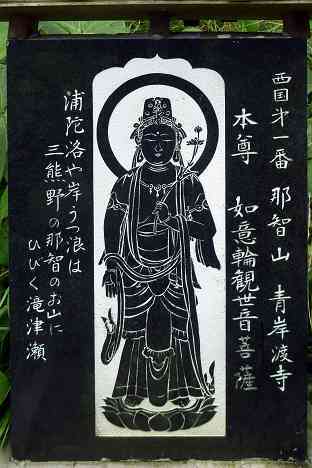 西国才一番 那智山 青岸渡寺
本尊 如意輪観世音菩薩
浦陀洛や岸うつ浪は
三熊野の那智のお山に
ひびく滝津瀬